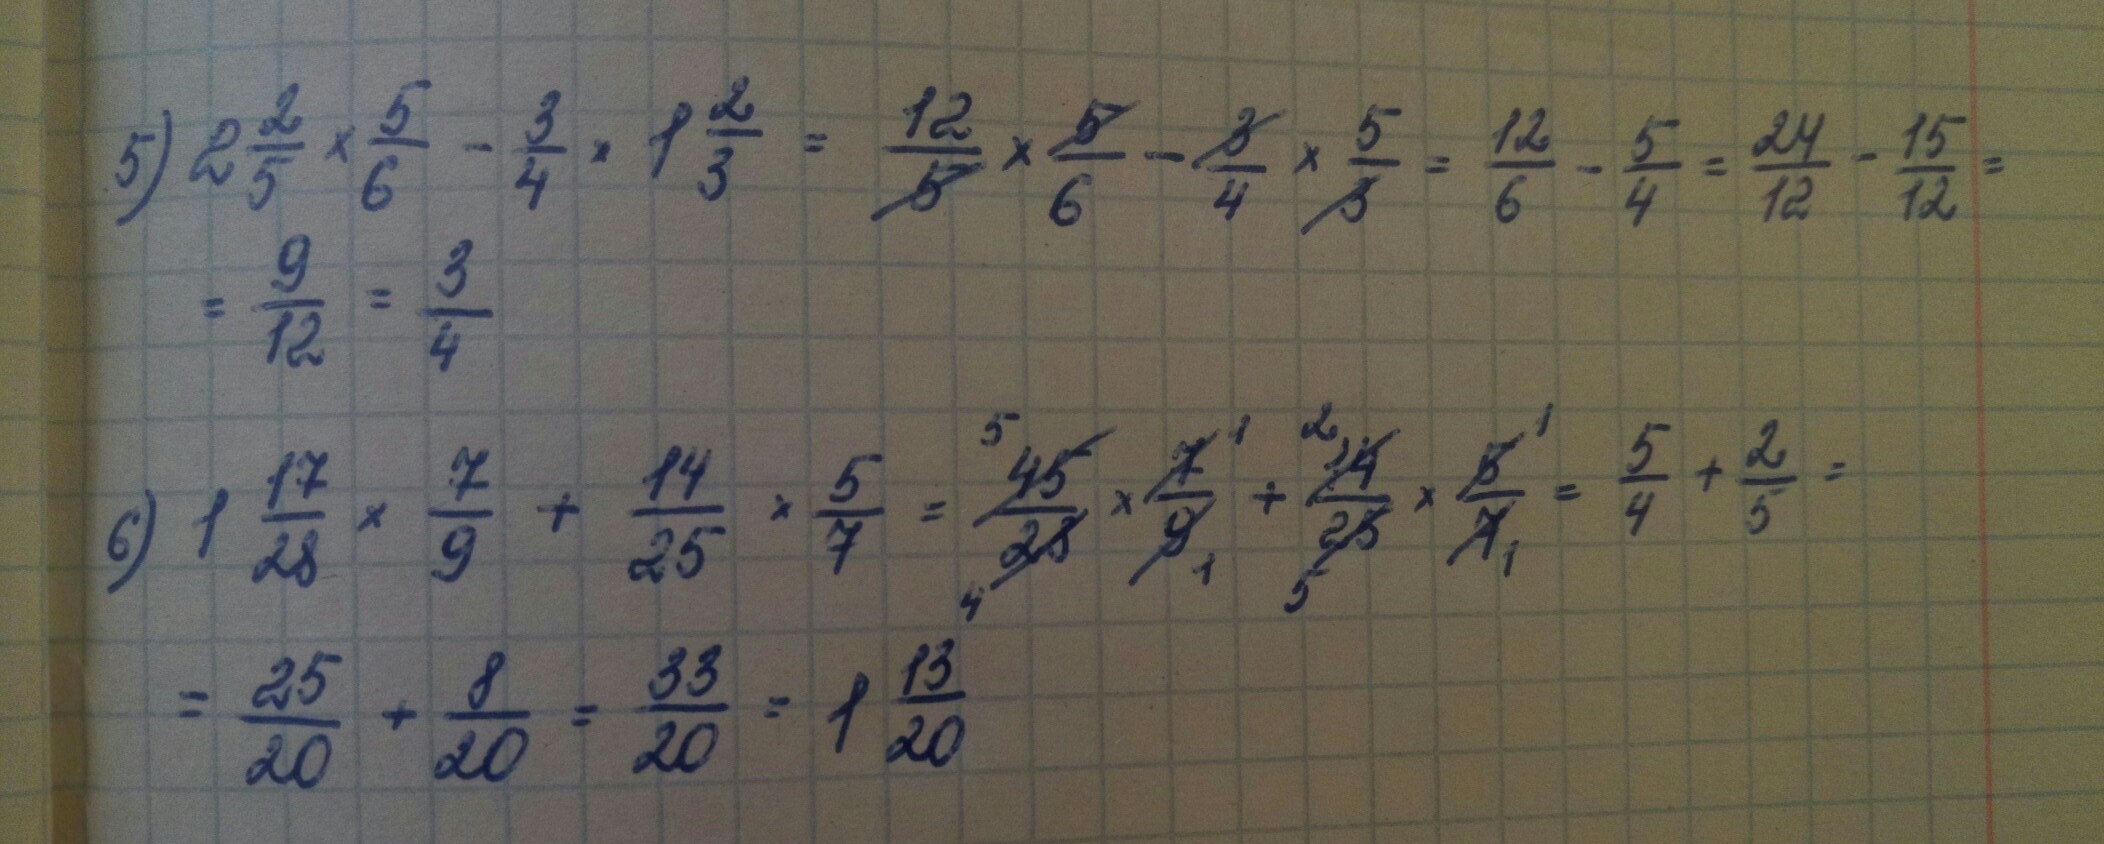 5) 2 2/5 × 5/6 - 3/4 × 1 2/3 = 12/5 × 5/6 - 3/4 × 5/3 = 12/6 - 5/4 = 24/12 - 15/12 =
= 9/12 = 3/4
6) 1 17/28 × 7/9 + 14/25 × 5/7 = 5 45/28 4 × 7 1/9 1 + 2 14/25 5 × 5 1/7 1 = 5/4 + 2/5 =
= 25/20 + 8/20 = 33/20 = 1 13/20